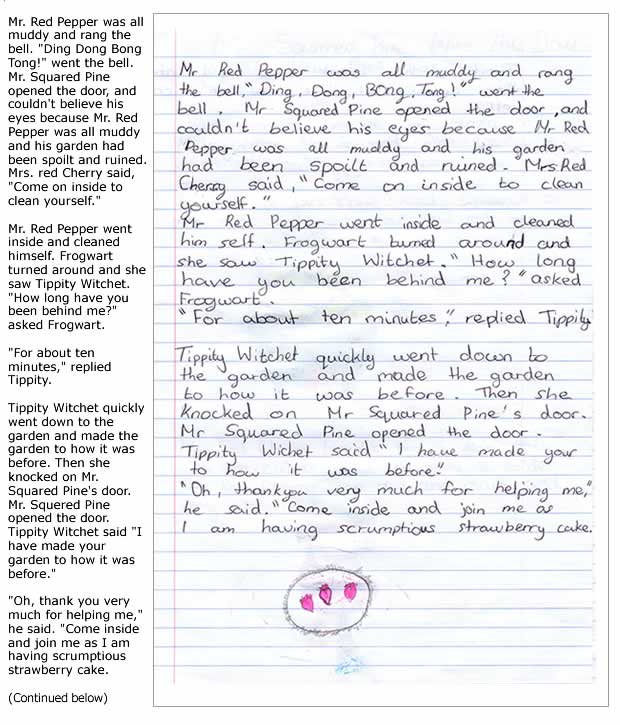 Mr. Red Pepper was all
muddy and rang the
bell. "Ding Dong Bong
Tong!" went the bell.
Mr. Squared Pine
opened the door, and
couldn't believe his
eyes because Mr. Red
Pepper was all muddy
and his garden had
been spoilt and ruined.
Mrs. red Cherry said,
"Come on inside to
clean yourself."
Mr. Red Pepper went
inside and cleaned
himself. Frogwart
turned around and she
saw Tippity Witchet.
"How long have you
been behind me?"
asked Frogwart.
"For about ten
minutes," replied
Tippity.
Tippity Witchet quickly
went down to the
garden and made the
garden to how it was
before. Then she
knocked on Mr.
Squared Pine's door.
Mr. Squered Pine
opened the door.
Tippity Witchet said "I
have made your
garden to how it was
before."
"Oh, thank you very
much for helping me,"
he said. "Come inside
and join me as I am
having scrumptious
strawberry cake.
(Continued below)
Mr Red Pepper was all muddy and rang
the bell," Ding, Dong, BOng, Tong!" went the
bell. Mr Squared Pine opened the door, and
couldn't believe his eyes because Mr Red
Pepper was all muddy and his garden
had been spoilt and ruined. Mrs Red
Cherry said, "Come on inside to clean
yourself."
Mr Red Pepper went inside and cleaned
him self. Frogwart turned around and
she saw Tippity Witchet. "How long
have you been behind me?" asked
Frogwart.
"For about ten minutes," replied Tippity
Tippity Witchet quickly went down to
the garden and made the garden
to how it was before. Then she
Knocked on Mr Squared Pine's door.
Mr Squared Pine opened the door.
Tippity Wichet said "I have made your
to how it was before."
"Oh, thankyou very much for helping me,"
he said. "Come inside and join me as
I am having scrumptious strawberry cake.